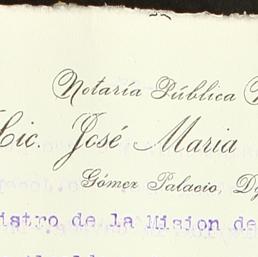 Notaría Pública
Lic. José Maria
Gómez Palacio, Dg
istro de la Mision de